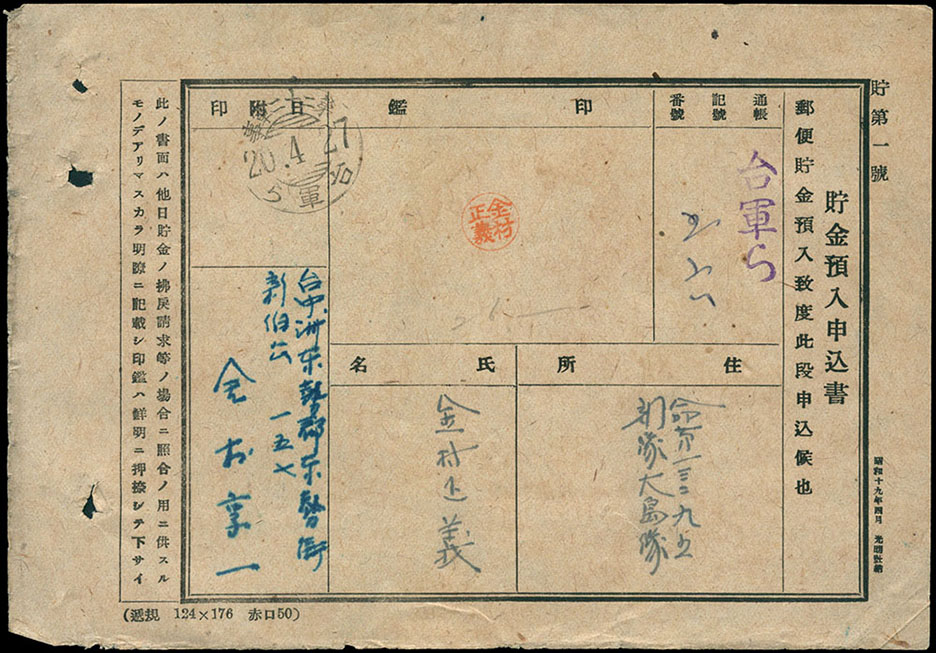 貯第一號
貯金預入申込書
郵便貯金預入致度此段申込候也
昭和十九年四月
通帳
記號
番號
台軍ら
印鑑
金村
正義
日附印
20.4.27
軍
住所
別隊大島隊
氏名
金村正義
台中洲东勢郡东勢街
新伯公 一五七
金村享一
此ノ書面ハ他日貯金ノ拂戾請求等ノ場合ニ照合ノ用ニ供スル
モノデアリマスカラ明瞭ニ記載シ印鑑ハ鮮明ニ押捺シテ下サイ
(遞規 124×176 赤口50)